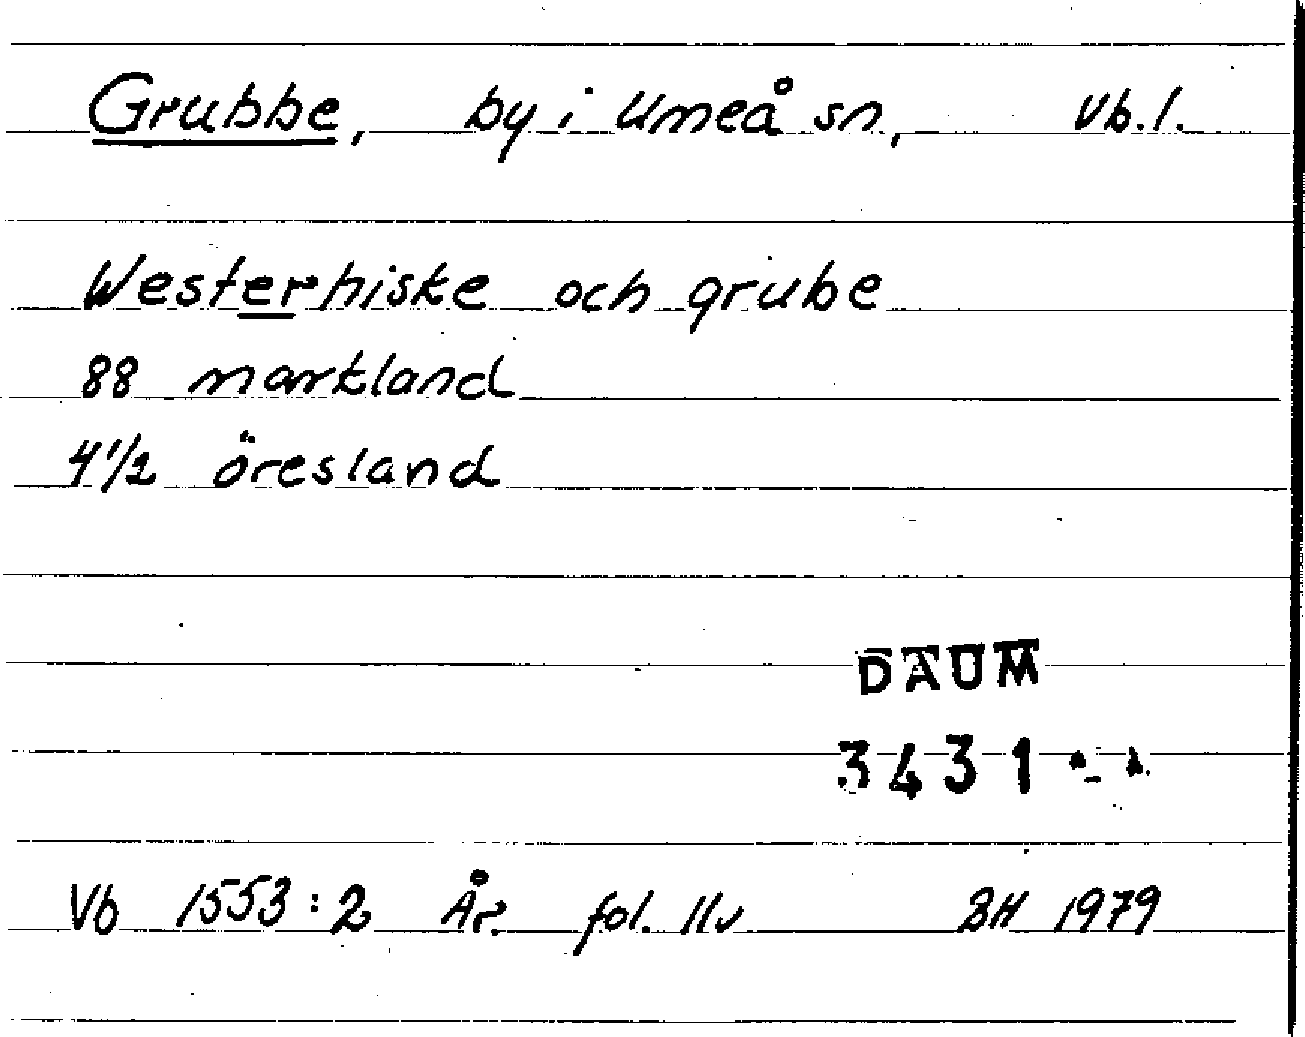 Grubbe, by i Umeå sn, Vb.l.
Westerhiske och grube
88 markland
4 1/2 öresland
DAUM
3431
Vb 1553:2 År. fol. 11v BH 1979